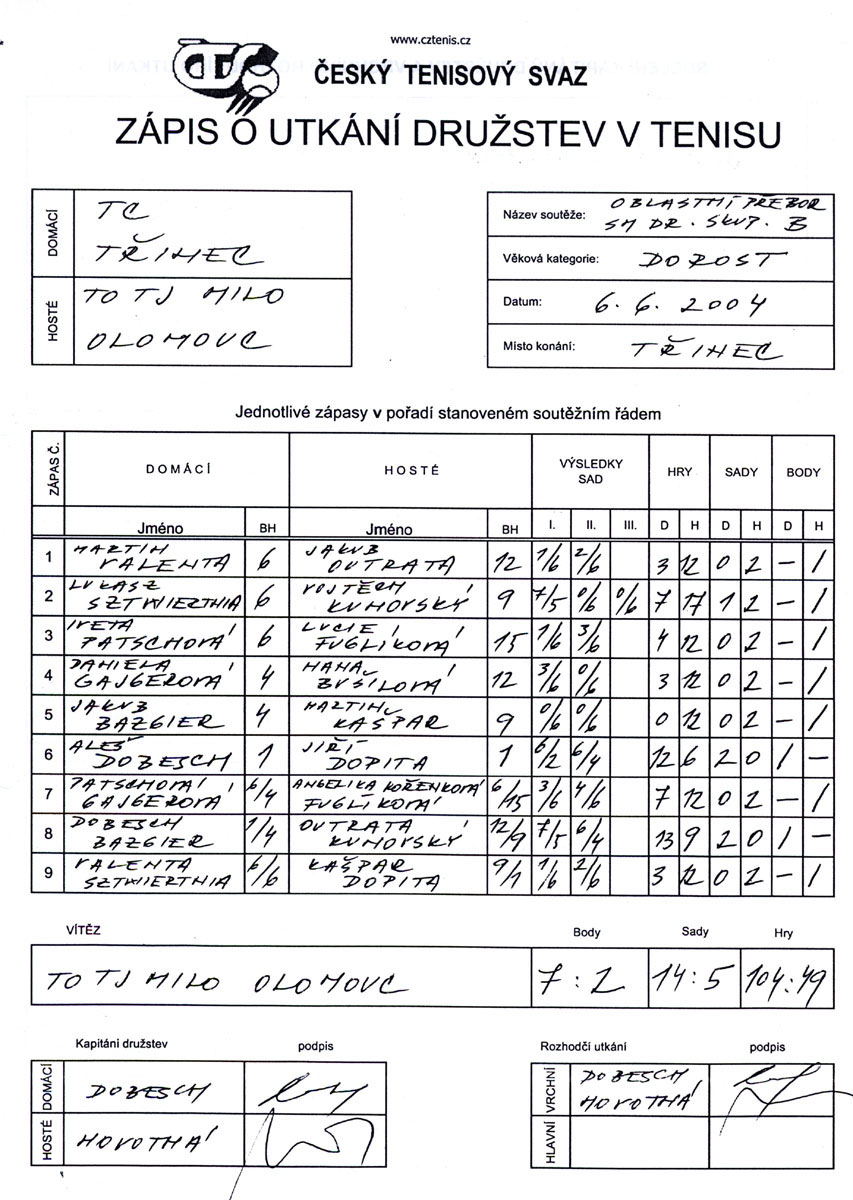 www.cztenis.cz
ČTS
ČESKÝ TENISOVÝ SVAZ
ZÁPIS O UTKÁNÍ DRUŽSTEV V TENISU
DOMÁCÍ
TC
TŘINEC
HOSTÉ
TO TJ MILO
OLOMOUC
Název soutěže: OBLASTNÍ PŘEBOR
SM DR. SKUP. B
Věková kategorie: DOROST
Datum: 6. 6. 2004
Místo konání: TŘINEC
Jednotlivé zápasy v pořadí stanoveném soutěžním řádem
ZÁPAS Č. DOMÁCÍ HOSTÉ VÝSLEDKY SAD HRY SADY BODY
Jméno BH Jméno BH I. II. III. D H D H D H
1 MARTIN VALENTA 6 JAKUB OUTRATA 12 1/6 2/6 3 12 0 2 – 1
2 LUKASZ SZTWIERTNIA 6 VOJTĚCH KUNOVSKÝ 9 7/5 0/6 0/6 7 17 1 2 – 1
3 IVETA PATSCHOVÁ 6 LUCIE FUGLÍKOVÁ 15 1/6 3/6 4 12 0 2 – 1
4 DANIELA GAJGEROVÁ 4 HANA BUSILOVÁ 12 3/6 0/6 3 12 0 2 – 1
5 JAKUB BAZGIER 4 MARTIN KAŠPAR 9 0/6 0/6 0 12 0 2 – 1
6 ALEŠ DOBESCH 1 JIŘÍ DOPITA 1 6/2 6/4 12 6 2 0 1 –
7 PATSCHOVÁ GAJGEROVÁ 6/4 ANGELIKA KOŘENKOVÁ FUGLÍKOVÁ 6/15 3/6 4/6 7 12 0 2 – 1
8 DOBESCH BAZGIER 1/4 OUTRATA KUNOVSKÝ 12/9 7/5 6/4 13 9 2 0 1 –
9 VALENTA SZTWIERTNIA 6/6 KAŠPAR DOPITA 9/1 1/6 2/6 3 12 0 2 – 1
VÍTĚZ Body Sady Hry
TO TJ MILO OLOMOUC 7:2 14:5 104:49
Kapitáni družstev podpis
DOMÁCÍ DOBESCH
HOSTÉ NOVOTNÁ
Rozhodčí utkání podpis
VRCHNÍ DOBESCH
NOVOTNÁ
HLAVNÍ